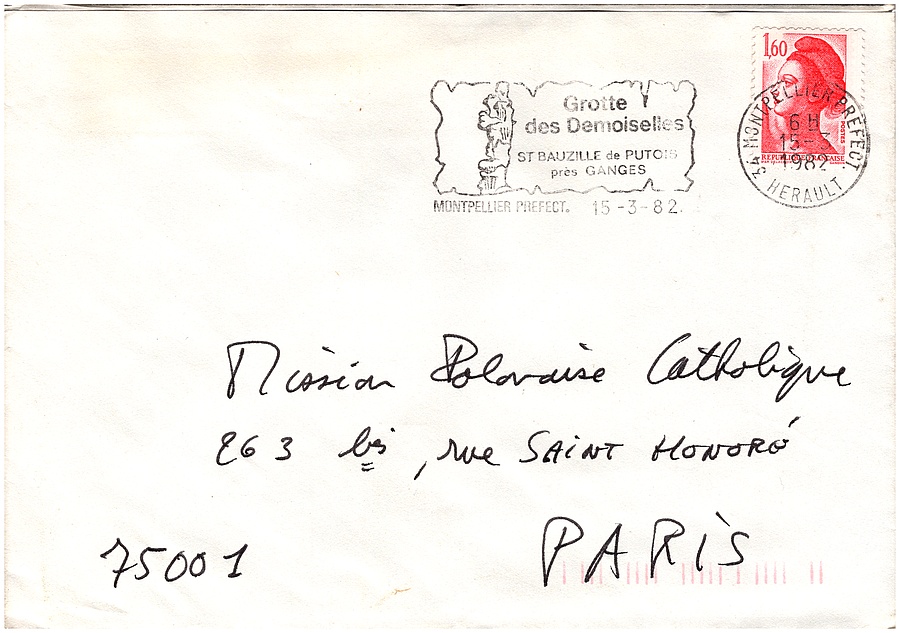 1,60
POSTES
REPUBLIQUE FRANÇAISE
34 MONTPELLIER PREFECT.
6 H
15-3
1982
HERAULT
Grotte
des Demoiselles
ST BAUZILLE de PUTOIS
près GANGES
MONTPELLIER PREFECT. 15-3-82.
Mission Polonaise Catholique
263 bis, rue SAINT HONORÉ
75001 PARIS